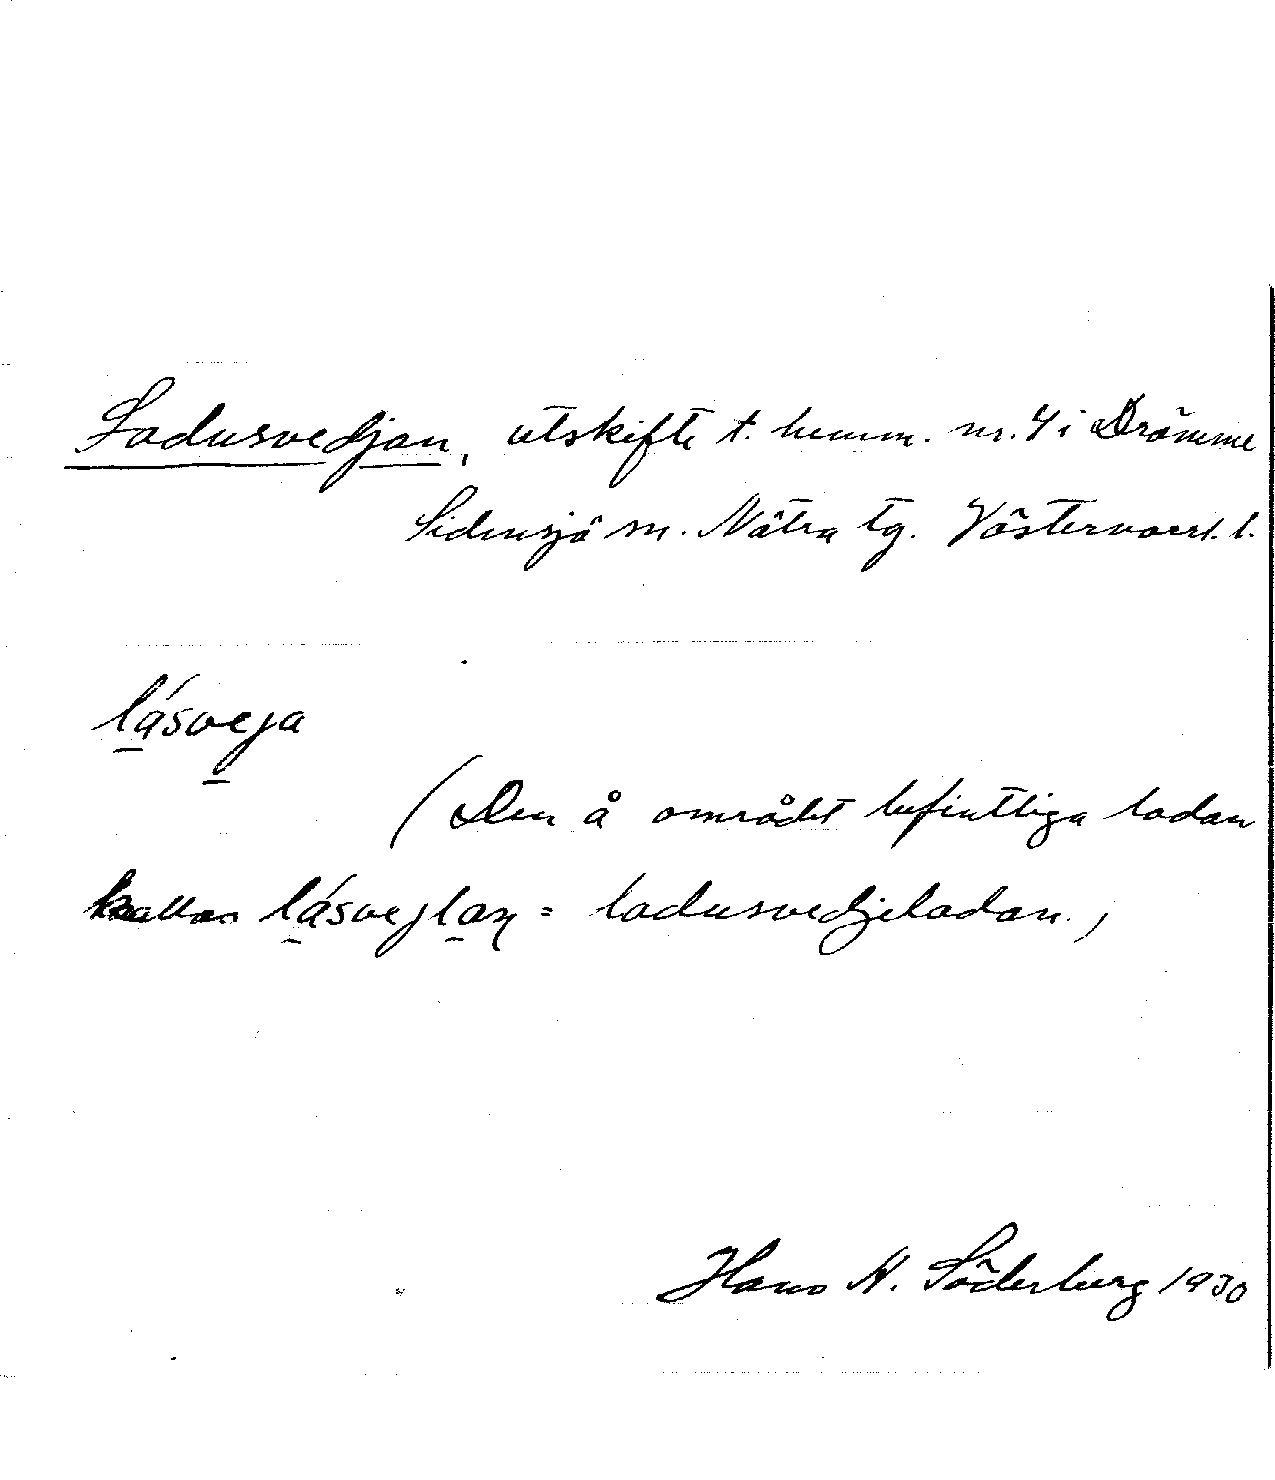 Ladusvedjan, utskifte t. hemm. nr. 4 i Drömme
Sidensjö sn. Nätra tg. Västernorrl. l.
lásveja
(Den å området befintliga ladan
kallas lásvejlaŋ = ladusvedjeladan.)
Hans N. Söderberg 1930